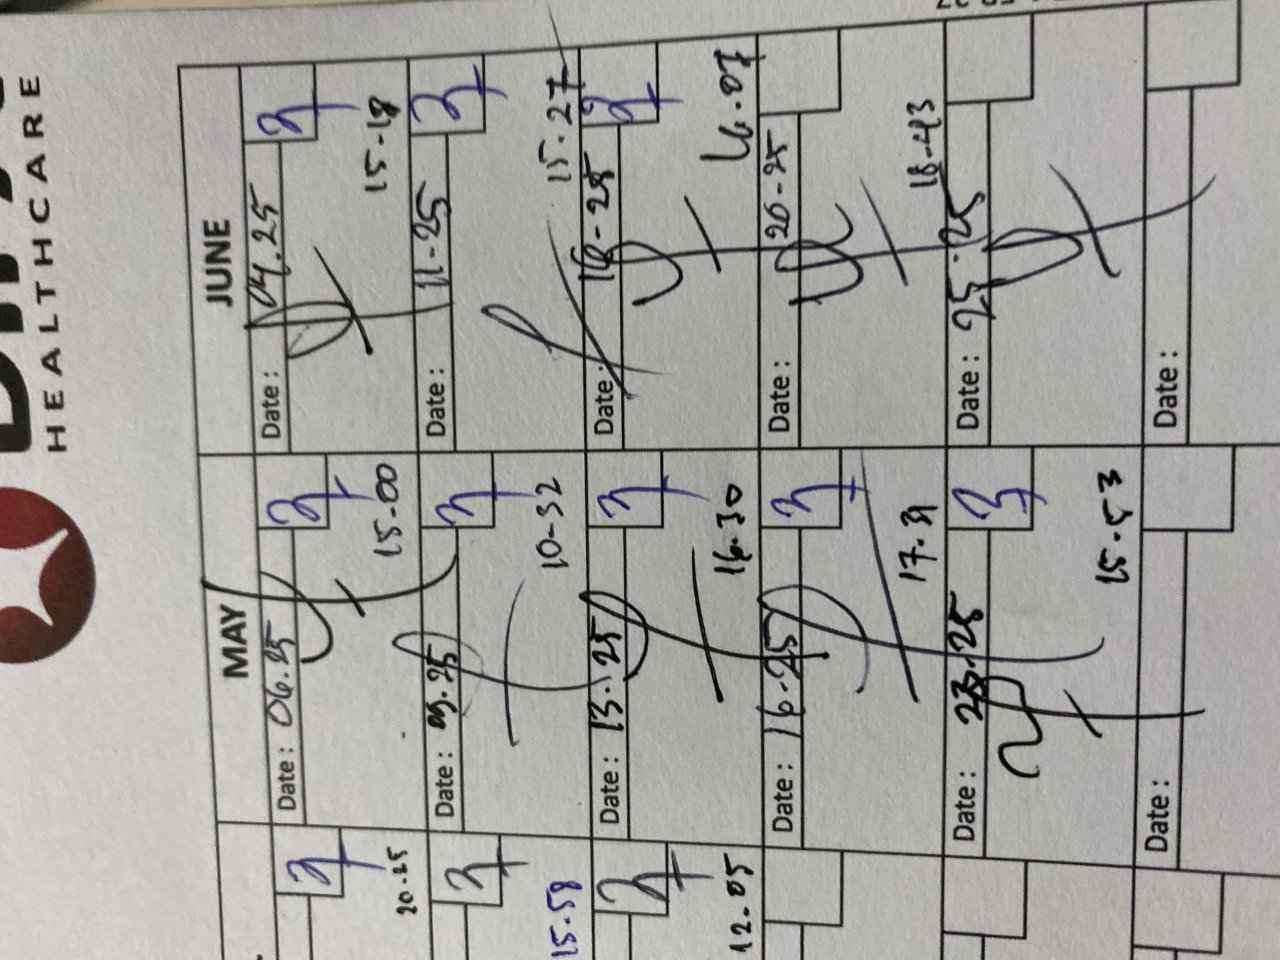 HEALTHCARE
MAY
JUNE
Date: 06.25
15-00
Date: 04.25
15-18
20.25
Date: 09.25
10-32
Date: 11-25
15.27
15.58
Date: 13.25
16.30
Date: 18-25
16.07
12.05
Date: 16-25
17.31
Date: 20-25
18-43
Date: 23.25
15.53
Date: 25.25
Date:
Date: